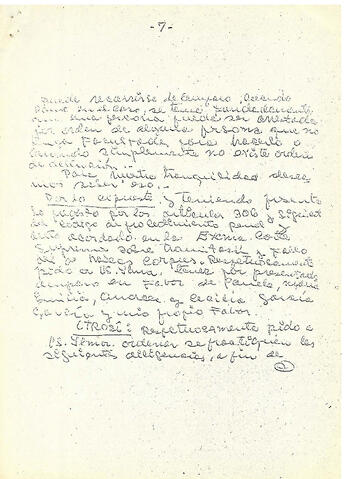 -7-
puede recurrirse de amparo, cuando
como en el caso, se teme fundadamente
que una persona puede ser arrestada
por orden de alguna persona que no
tenga facultades para hacerlo o
cuando simplemente no existe orden
de detención.
Para nuestra tranquilidad
eso.
Por lo expuesto y teniendo presente
lo por los artículos 306 y siguient
del Código de procedimiento penal y
auto acordado en la Excma. Corte
Suprema sobre tramitación y fallo
de Habeas Corpus. Respetuosamente
pido a US. Iltma. tener por presentado
amparo en favor de Pamela,
Emilia, Andrea y Cecilia García
García y mio propio favor.
OTROSI: Respetuosamente pido a
US. Iltma. ordenar se practiquen las
siguientes diligencias, a fin de